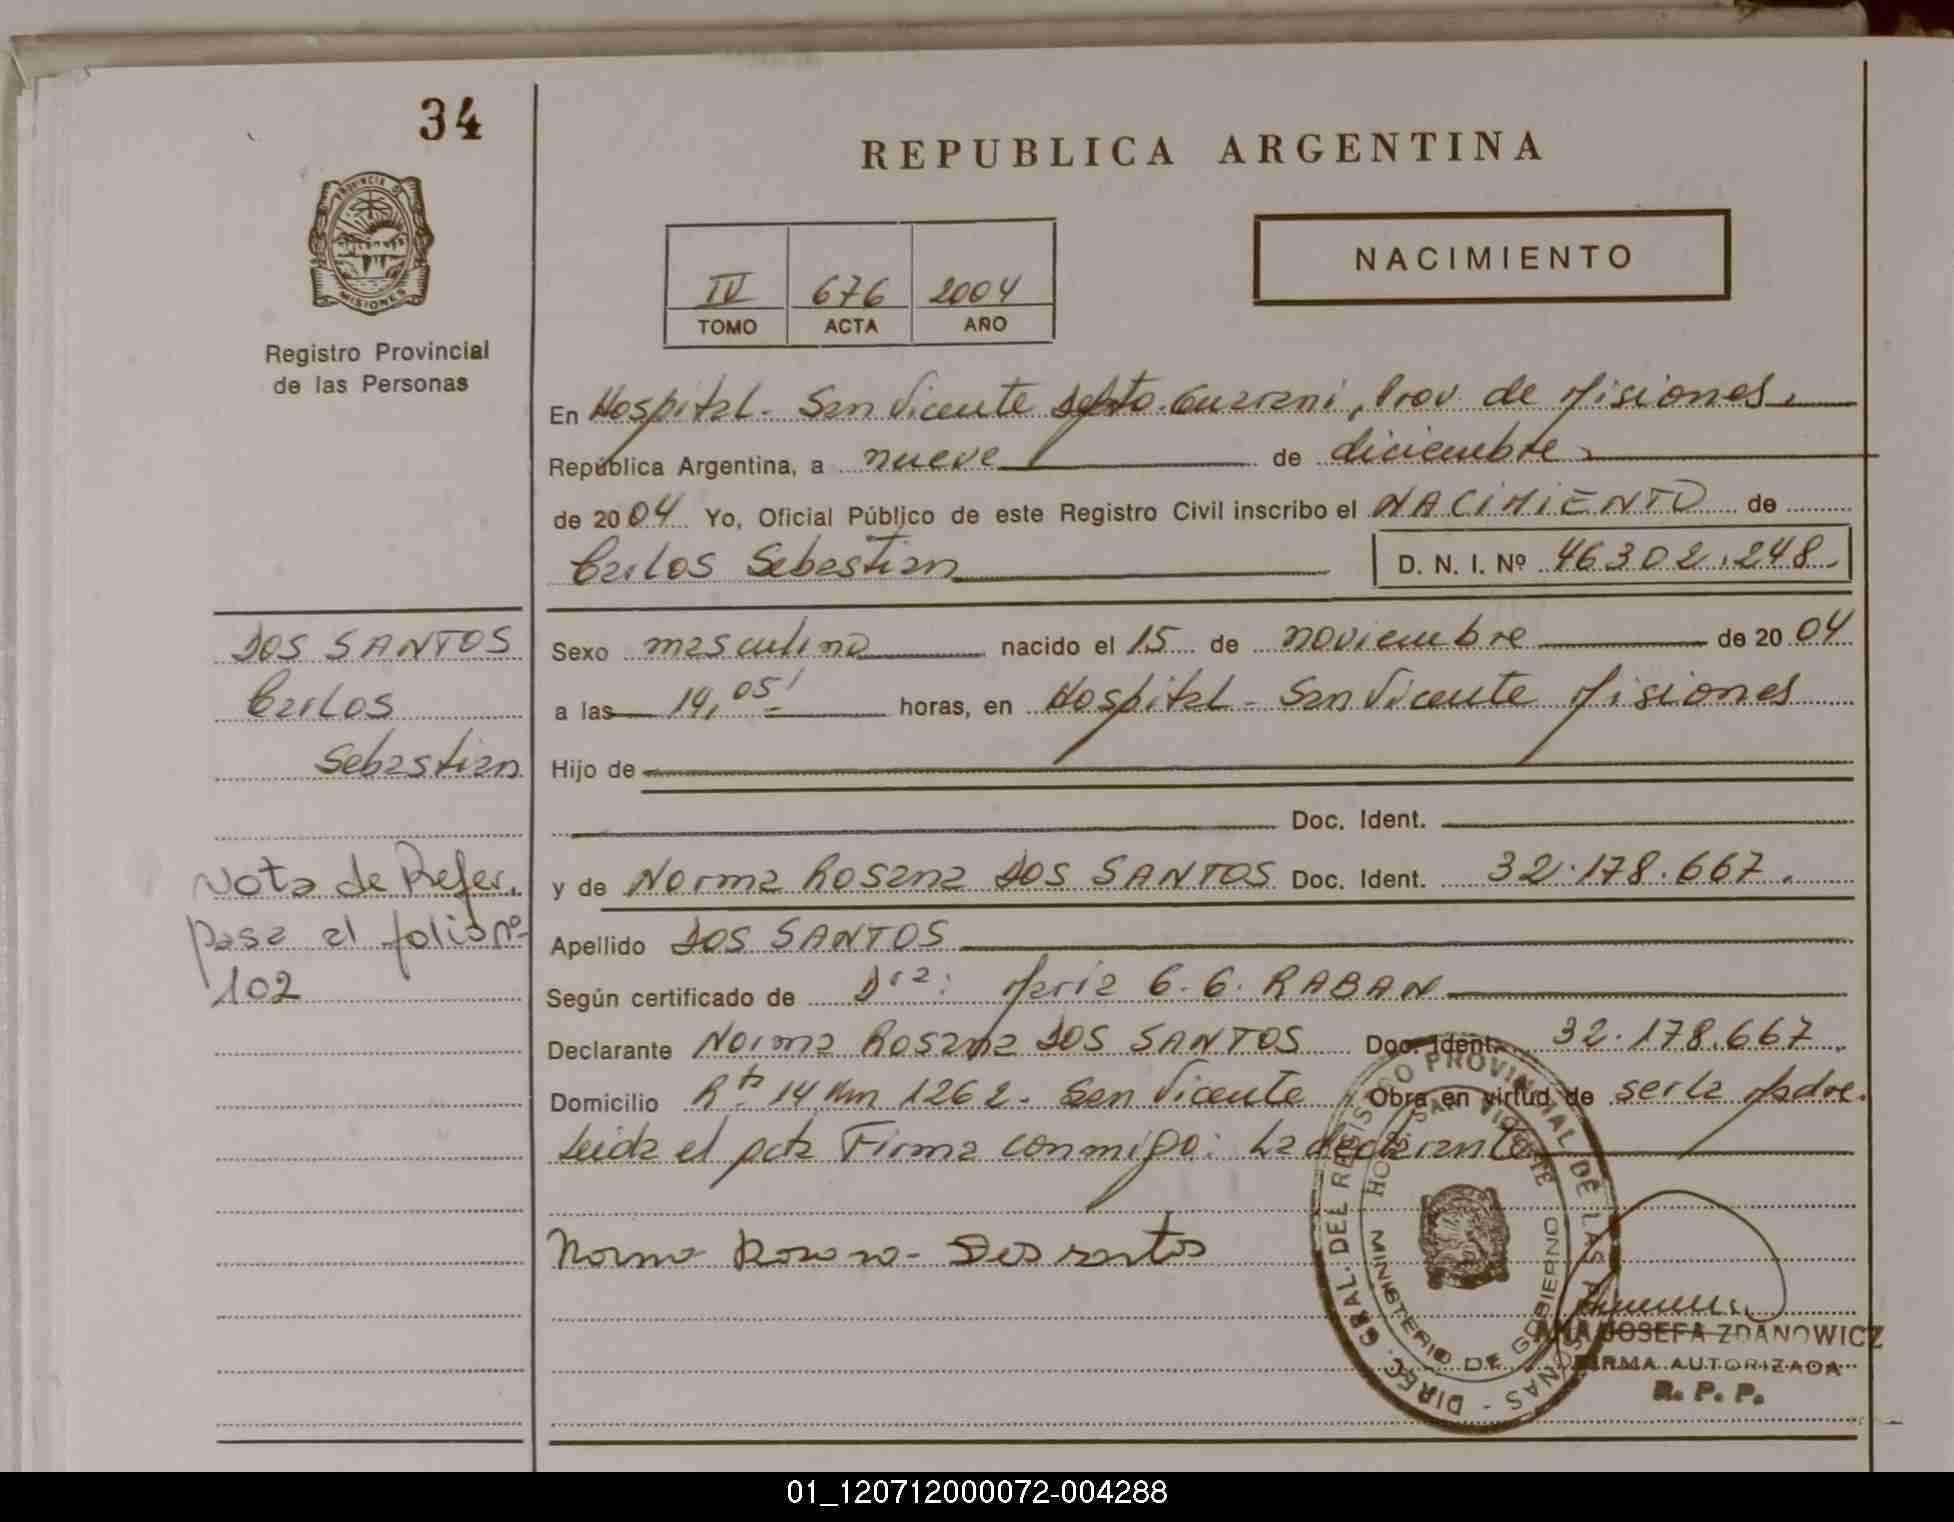 34
REPUBLICA ARGENTINA
PROVINCIA D
MISIONES
NACIMIENTO
IV 676 2004
TOMO ACTA AÑO
Registro Provincial
de las Personas
En Hospital - San Vicente Depto. Guarani, Prov. de Misiones.
República Argentina, a nueve de diciembre
de 2004 Yo, Oficial Público de este Registro Civil inscribo el NACIMIENTO de
Carlos Sebastian D. N. I. Nº 46302.248.
DOS SANTOS
Carlos
Sebastian
Sexo masculino nacido el 15 de noviembre de 2004
a las 14,05' horas, en Hospital - San Vicente Misiones
Hijo de
Doc. Ident.
Nota de Refer.
pasa al folio nº
102
y de Norma Rosana DOS SANTOS Doc. Ident. 32.178.667.
Apellido DOS SANTOS
Según certificado de Dra: Maria G. G. RABAN
Declarante Norma Rosana DOS SANTOS Doc. Ident. 32.178.667.
Domicilio Rta 14 Km 1262 - San Vicente Obra en virtud de ser la Madre.
Leida el acta Firma conmigo: La declarante
Norma Rosana Dos santos
DIREC. GRAL. DEL REGISTRO PROVINCIAL DE LAS PERSONAS -
SAN VICENTE
MINISTERIO DE GOBIERNO
ANA JOSEFA ZDANOWICZ
FIRMA AUTORIZADA
R. P. P.
01_120712000072-004288